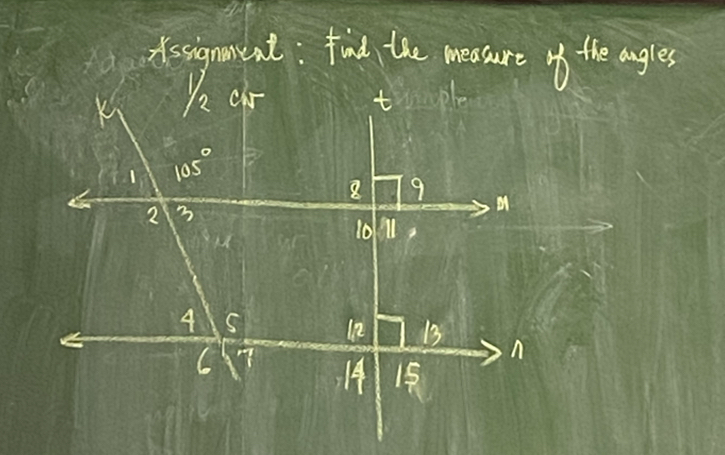 Assignment: Find the measure of the angles
1/2 cw
K t
1 105° 8 9
M
2 3 10 11
4 5 12 13
n
6 7 14 15